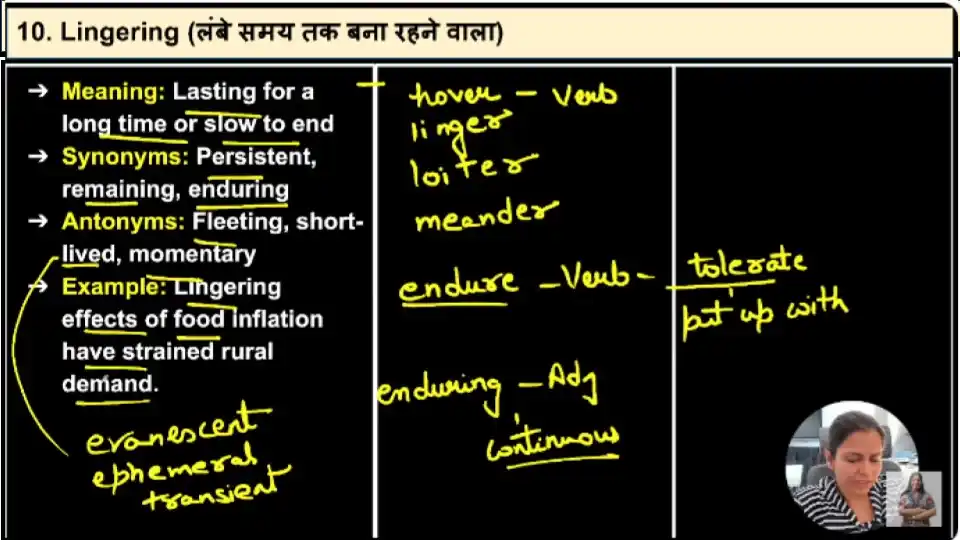 10. Lingering (लंबे समय तक बना रहने वाला)
→ Meaning: Lasting for a
long time or slow to end
→ Synonyms: Persistent,
remaining, enduring
→ Antonyms: Fleeting, short-
lived, momentary
→ Example: Lingering
effects of food inflation
have strained rural
demand.
evanescent
ephemeral
transient
hover - Verb
linger
loiter
meander
endure - Verb - tolerate
put up with
enduring - Adj
continuous